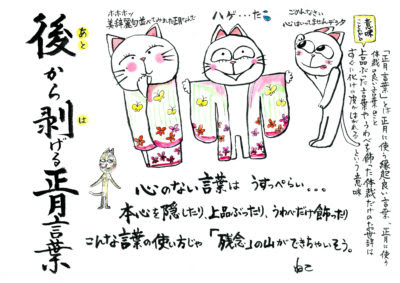 意味
ことわざの
「正月言葉」とは正月に使う縁起良い言葉、正月に使う
体裁の良い言葉のこと
上品ぶった言葉や、うわべを飾った体裁だけのお世辞は
すぐに化けの皮がはがれる
という意味
ごめんなさい
心はいってませんデシタ
ハゲ…た
ホホホッ
美辞麗句並べてみれた正月なんて
後から剥げる正月言葉
あと
は
心のない言葉は うすっぺらい...
本心を隠したり、上品ぶったり、うわべだけ飾ったり
こんな言葉の使い方じゃ 「残念」の山ができちゃいそう。
ねこ